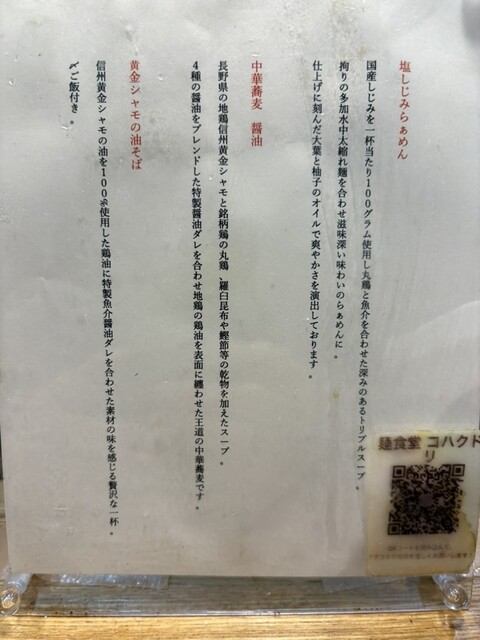 塩しじみらぁめん
国産しじみを一杯当たり100グラム使用し丸鶏と魚介を合わせた深みのあるトリプルスープ。
拘りの多加水中太縮れ麺を合わせ滋味深い味わいのらぁめんに。
仕上げに刻んだ大葉と柚子のオイルで爽やかさを演出しております。
中華蕎麦 醤油
長野県の地鶏信州黄金シャモと銘柄鶏の丸鶏、羅臼昆布や鰹節等の乾物を加えたスープ。
4種の醤油をブレンドした特製醤油ダレを合わせ地鶏の鶏油を表面に纏わせた王道の中華蕎麦です。
黄金シャモの油そば
信州黄金シャモの油を100%使用した鶏油に特製魚介醤油ダレを合わせた素材の味を感じる贅沢な一杯。
〆ご飯付き。
麺食堂 コハクド
リ
QRコードを読み込んで、